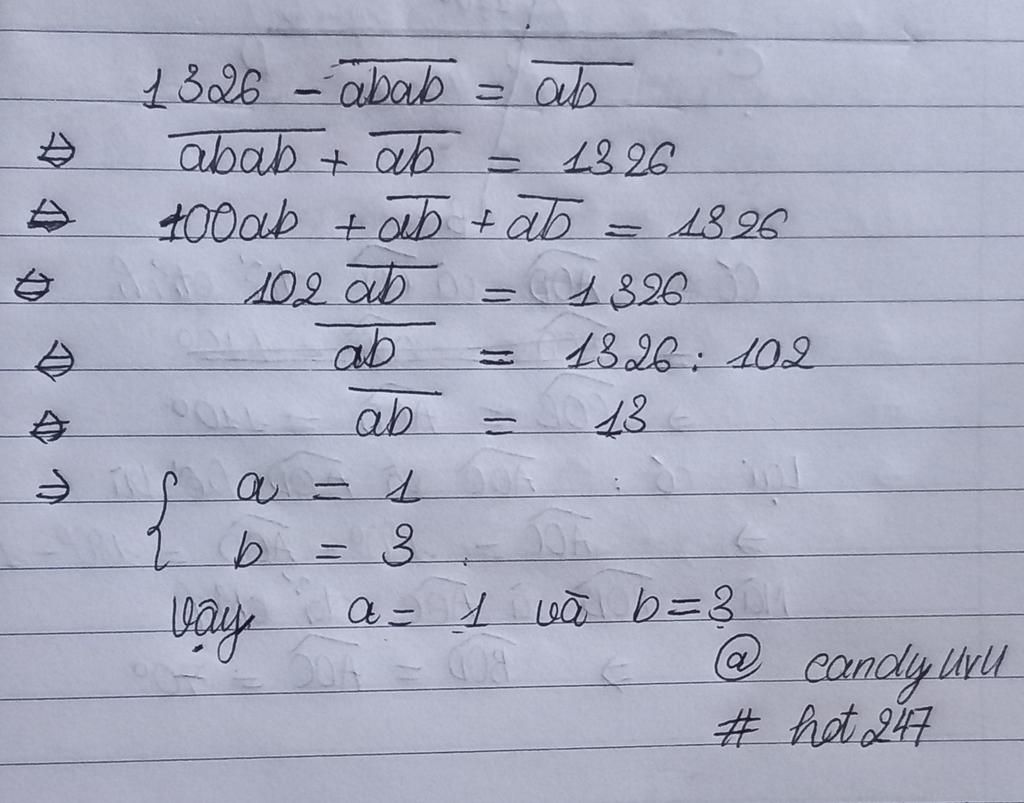 1326 - \overline{abab} = \overline{ab}
⇔ \overline{abab} + \overline{ab} = 1326
⇔ 100ab + \overline{ab} + \overline{ab} = 1326
⇔ 102 \overline{ab} = 1326
⇔ \overline{ab} = 1326 : 102
⇔ \overline{ab} = 13
⇒ { a = 1
b = 3.
Vậy a = 1 và b = 3
@ candy UvU
# hot247